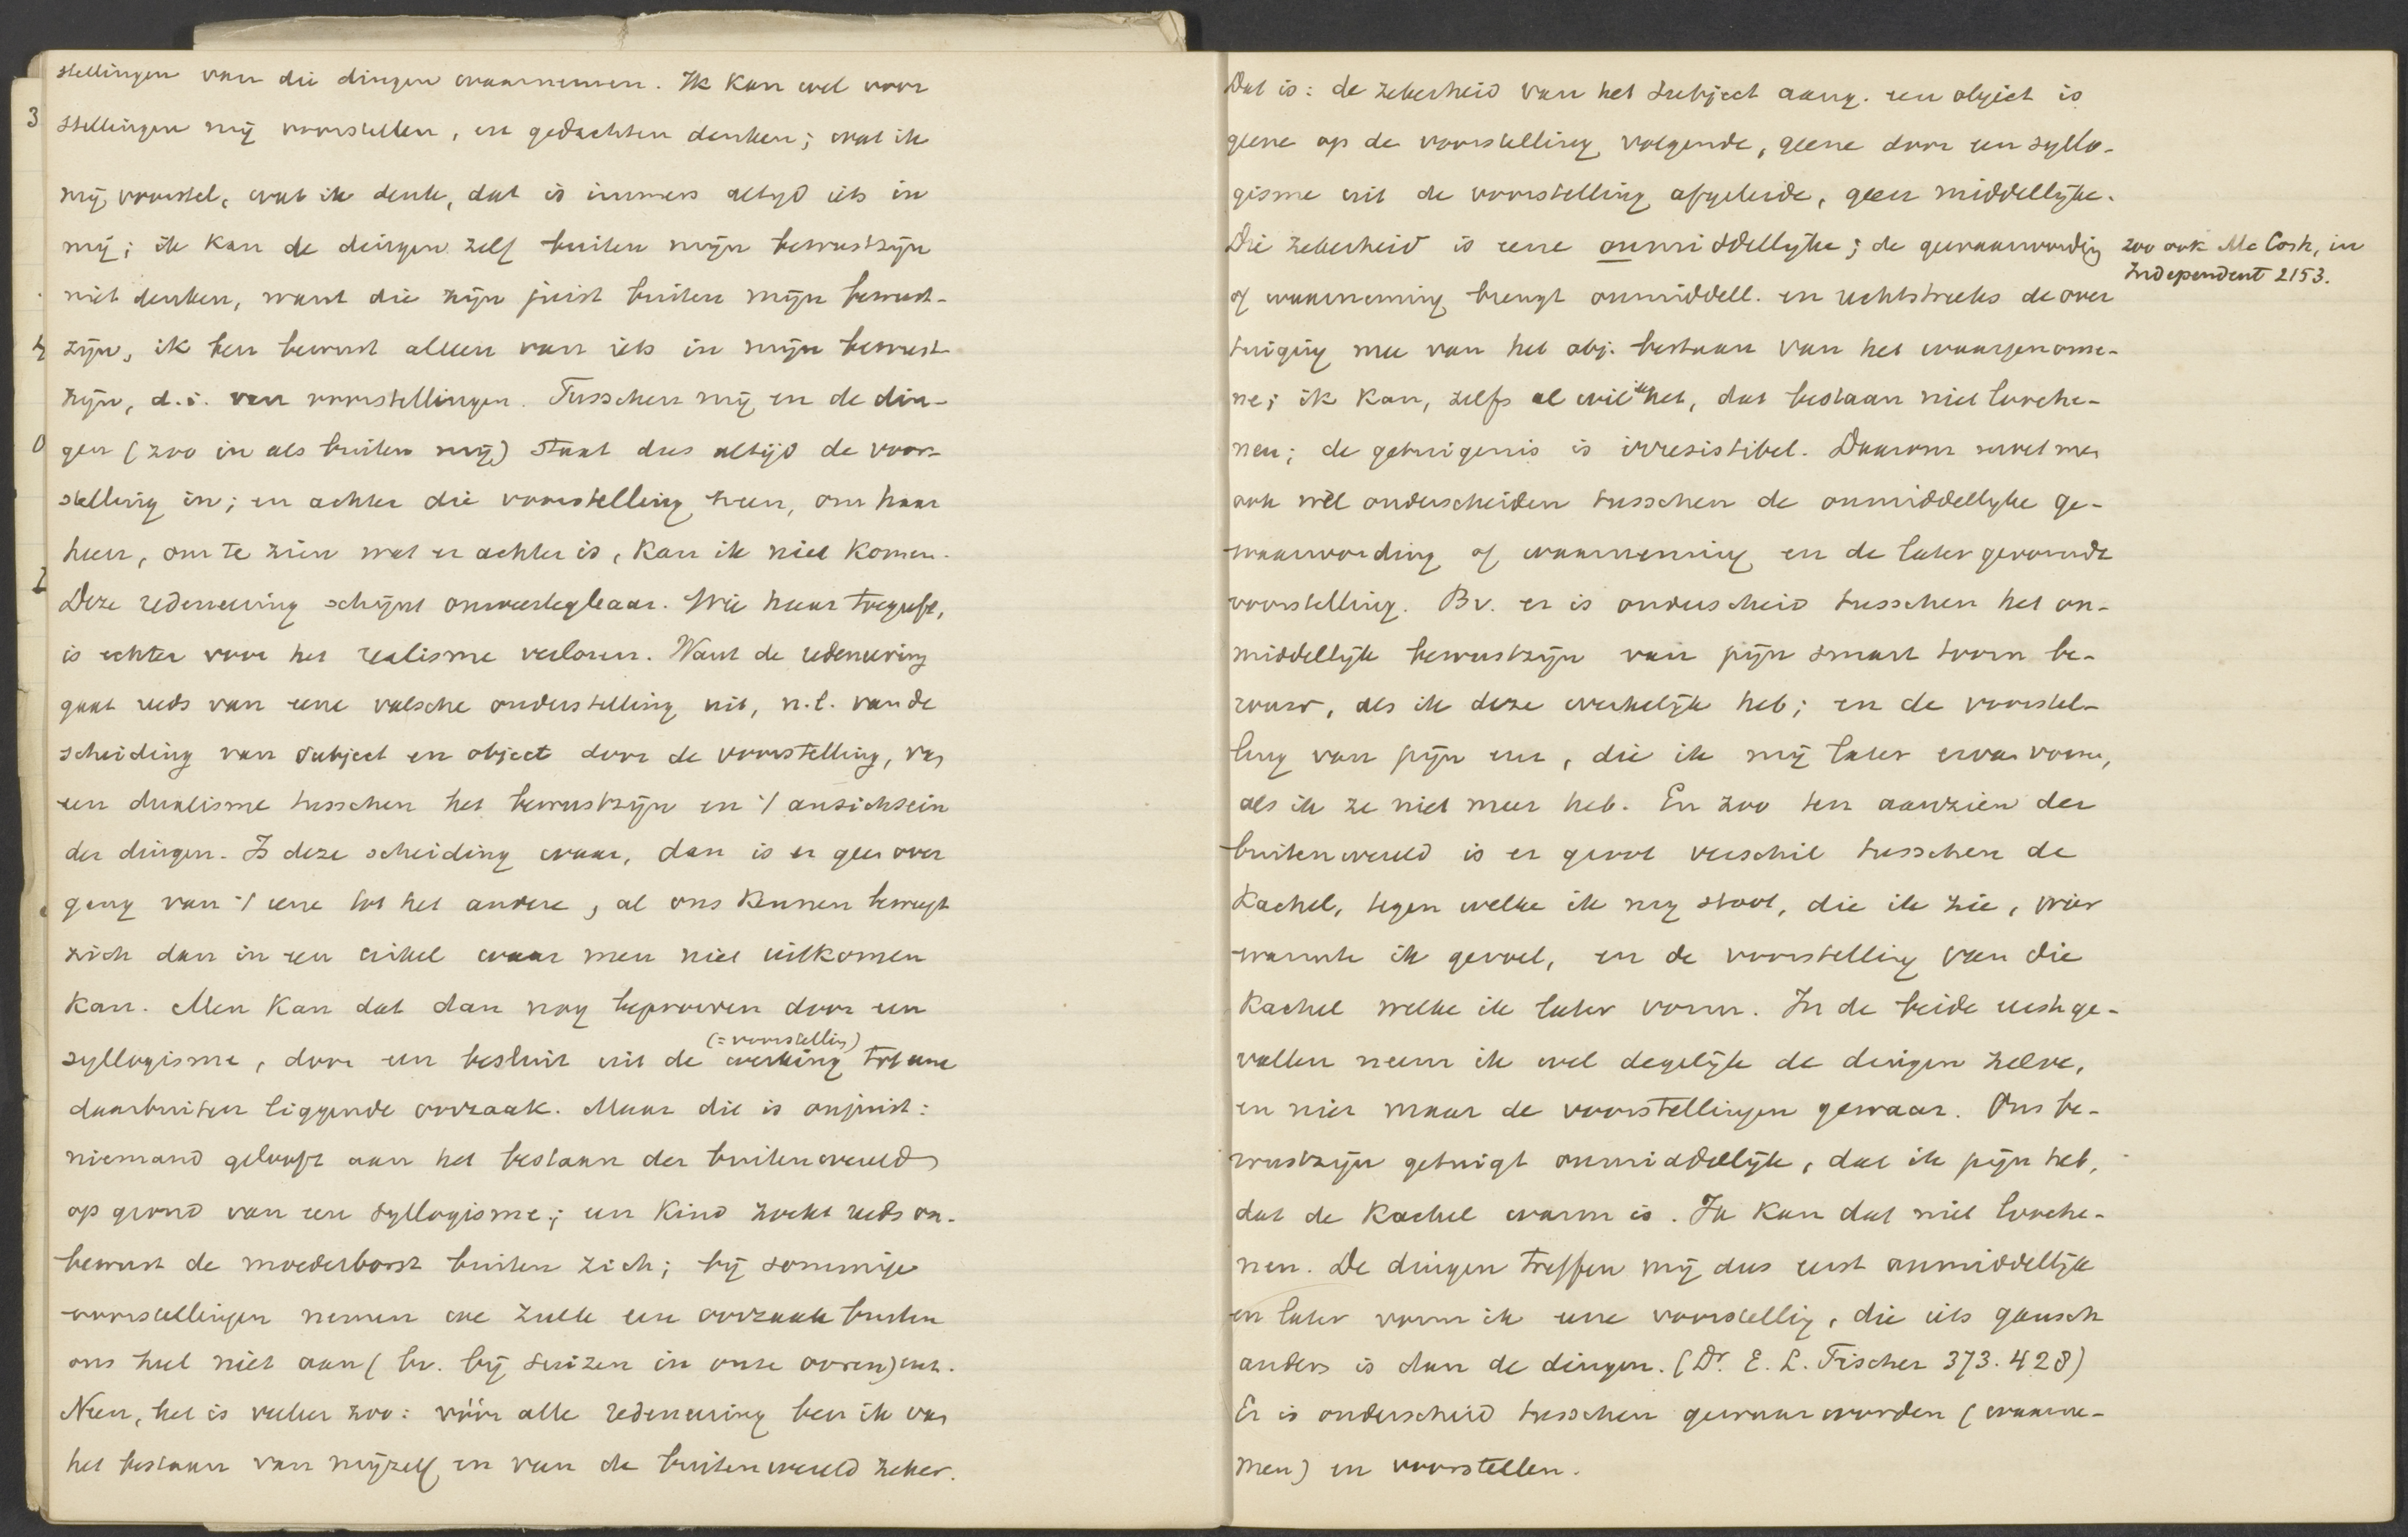 stellingen van die dingen waarnemen. Ik kan wel voor
stellingen mij voorstellen, en gedachten denken; wat ik
mij voorstel, wat ik denk, dat is immers altyd iets in
mij; ik kan de dingen zelf buiten mijn bewustzijn
niet denken, want die zijn juist buiten mijn bewust-
zijn, ik ben bewust alleen van iets in mijn bewust-
zijn, d.i. van voorstellingen. Tusschen mij en de din-
gen (zoo in als buiten mij) staat dus altijd de voor-
stelling in; en achter die voorstelling heen, om haar
heen, om te zien wat er achter is, kan ik niet komen.
Deze redeneering schijnt onweerlegbaar. Wie haar toegeeft,
is echter voor het realisme verloren. Want de redeneering
gaat reeds van eene valsche onderstelling uit, n.l. van de
scheiding van subject en object door de voorstelling, van
een dualisme tusschen het bewustzijn en 't ansichsein
der dingen. Is deze scheiding waar, dan is er geen over
gang van 't eene tot het andere, al ons kennen beweegt
zich dan in een cirkel waar men niet uitkomen
kan. Men kan dat dan nog beproeven door een
(= voorstelling)
syllogisme, door een besluit uit de werking tot eene
daarbuiten liggende oorzaak. Maar dit is onjuist:
niemand gelooft aan het bestaan der buitenwereld
op grond van een syllogisme; een kind zoekt reeds on-
bewust de moederborst buiten zich; bij sommige
voorstellingen nemen we zulk een oorzaak buiten
ons heel niet aan (bv. bij suizen in onze ooren) enz.
Neen, het is veeleer zoo: vóór alle redeneering ben ik van
het bestaan van mijzelf en van de buitenwereld zeker.
Dat is: de zekerheid van het subject aang. een object is
geene op de voorstelling volgende, geene door een syllo-
gisme uit de voorstelling afgeleide, geen middellijke.
Die zekerheid is eene onmiddellijke; de gewaarwording
zoo ook Mc Cosh, in
Independent 2153.
of waarneming brengt onmiddell. en rechtstreeks de over
tuiging mee van het obj. bestaan van het waargenome-
ne; ik kan, zelfs al wil ik het, dat bestaan niet looche-
nen; de getuigenis is irresistibel. Daarom moet men
ook wèl onderscheiden tusschen de onmiddellyke ge-
waarwording of waarneming en de later gevormde
voorstelling. Bv. er is onderscheid tusschen het on-
middellijk bewustzijn van pijn smart toorn be-
rouw, als ik deze werkelijk heb; en de voorstel-
ling van pijn enz, die ik mij later ervan vorm,
als ik ze niet meer heb. En zoo ten aanzien der
buitenwereld is er groot verschil tusschen de
kachel, tegen welke ik mij stoot, die ik zie, wier
warmte ik gevoel, en de voorstelling van die
kachel welke ik later vorm. In de beide eerste ge-
vallen neem ik wel degelijk de dingen zelve,
en niet maar de voorstellingen gewaar. Ons be-
wustzijn getuigt onmiddellijk, dat ik pijn heb,
dat de kachel warm is. Ik kan dat niet looche-
nen. De dingen treffen mij dus eerst onmiddellijk
en later vorm ik eene voorstelling, die iets gansch
anders is dan de dingen. (Dr. E. L. Fischer 373. 428)
Er is onderscheid tusschen gewaarworden (waarne-
men) en voorstellen.